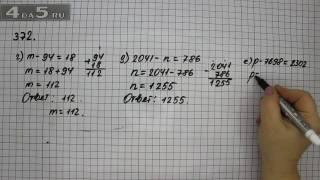 4DA5.RU
372.
г) m - 94 = 18
m = 18 + 94
m = 112
Ответ: 112.
m = 112.
+ 94
18
112
д) 2041 - n = 786
n = 2041 - 786
n = 1255
Ответ: 1255.
- 2041
786
1255
е) p - 7698 = 2302
p=